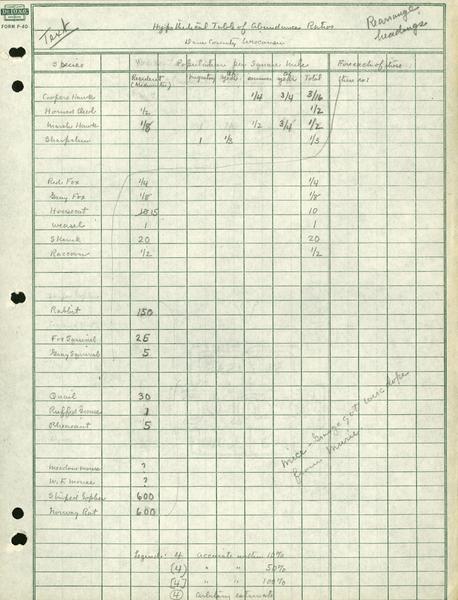 FORM F-40
Text
Hypothetical Table of Abundance Ratios
Dane County Wisconsin
Rearrange
headings
Species
Population per Square Mile
For each of these
Resident Migratory year summer year Total
(Midwinter)
there is 1
Coopers Hawk 1/4 3/4 3/16
Horned Owl 1/2 1/2
Marsh Hawk 1/8 1/2 3/4 1/2
Sharpshin 1 1/3 1/3
Red Fox 1/4 1/4
Gray Fox 1/8 1/8
Housecat 10 15 10
Weasel 1 1
Skunk 20 20
Raccoon 1/2 1/2
Rabbit 150
Fox Squirrel 25
Gray Squirrel 5
Quail 30
Ruffed Grouse 1
Pheasant 5
mice - Gunge got wisc dope
from Murie
Meadow mouse ?
W. F. Mouse ?
Striped Gopher 600
Norway Rat 600
Legend: 4 Accurate within 10%
(4) " " 50%
[4] " " 100%
④ Arbitrary estimate